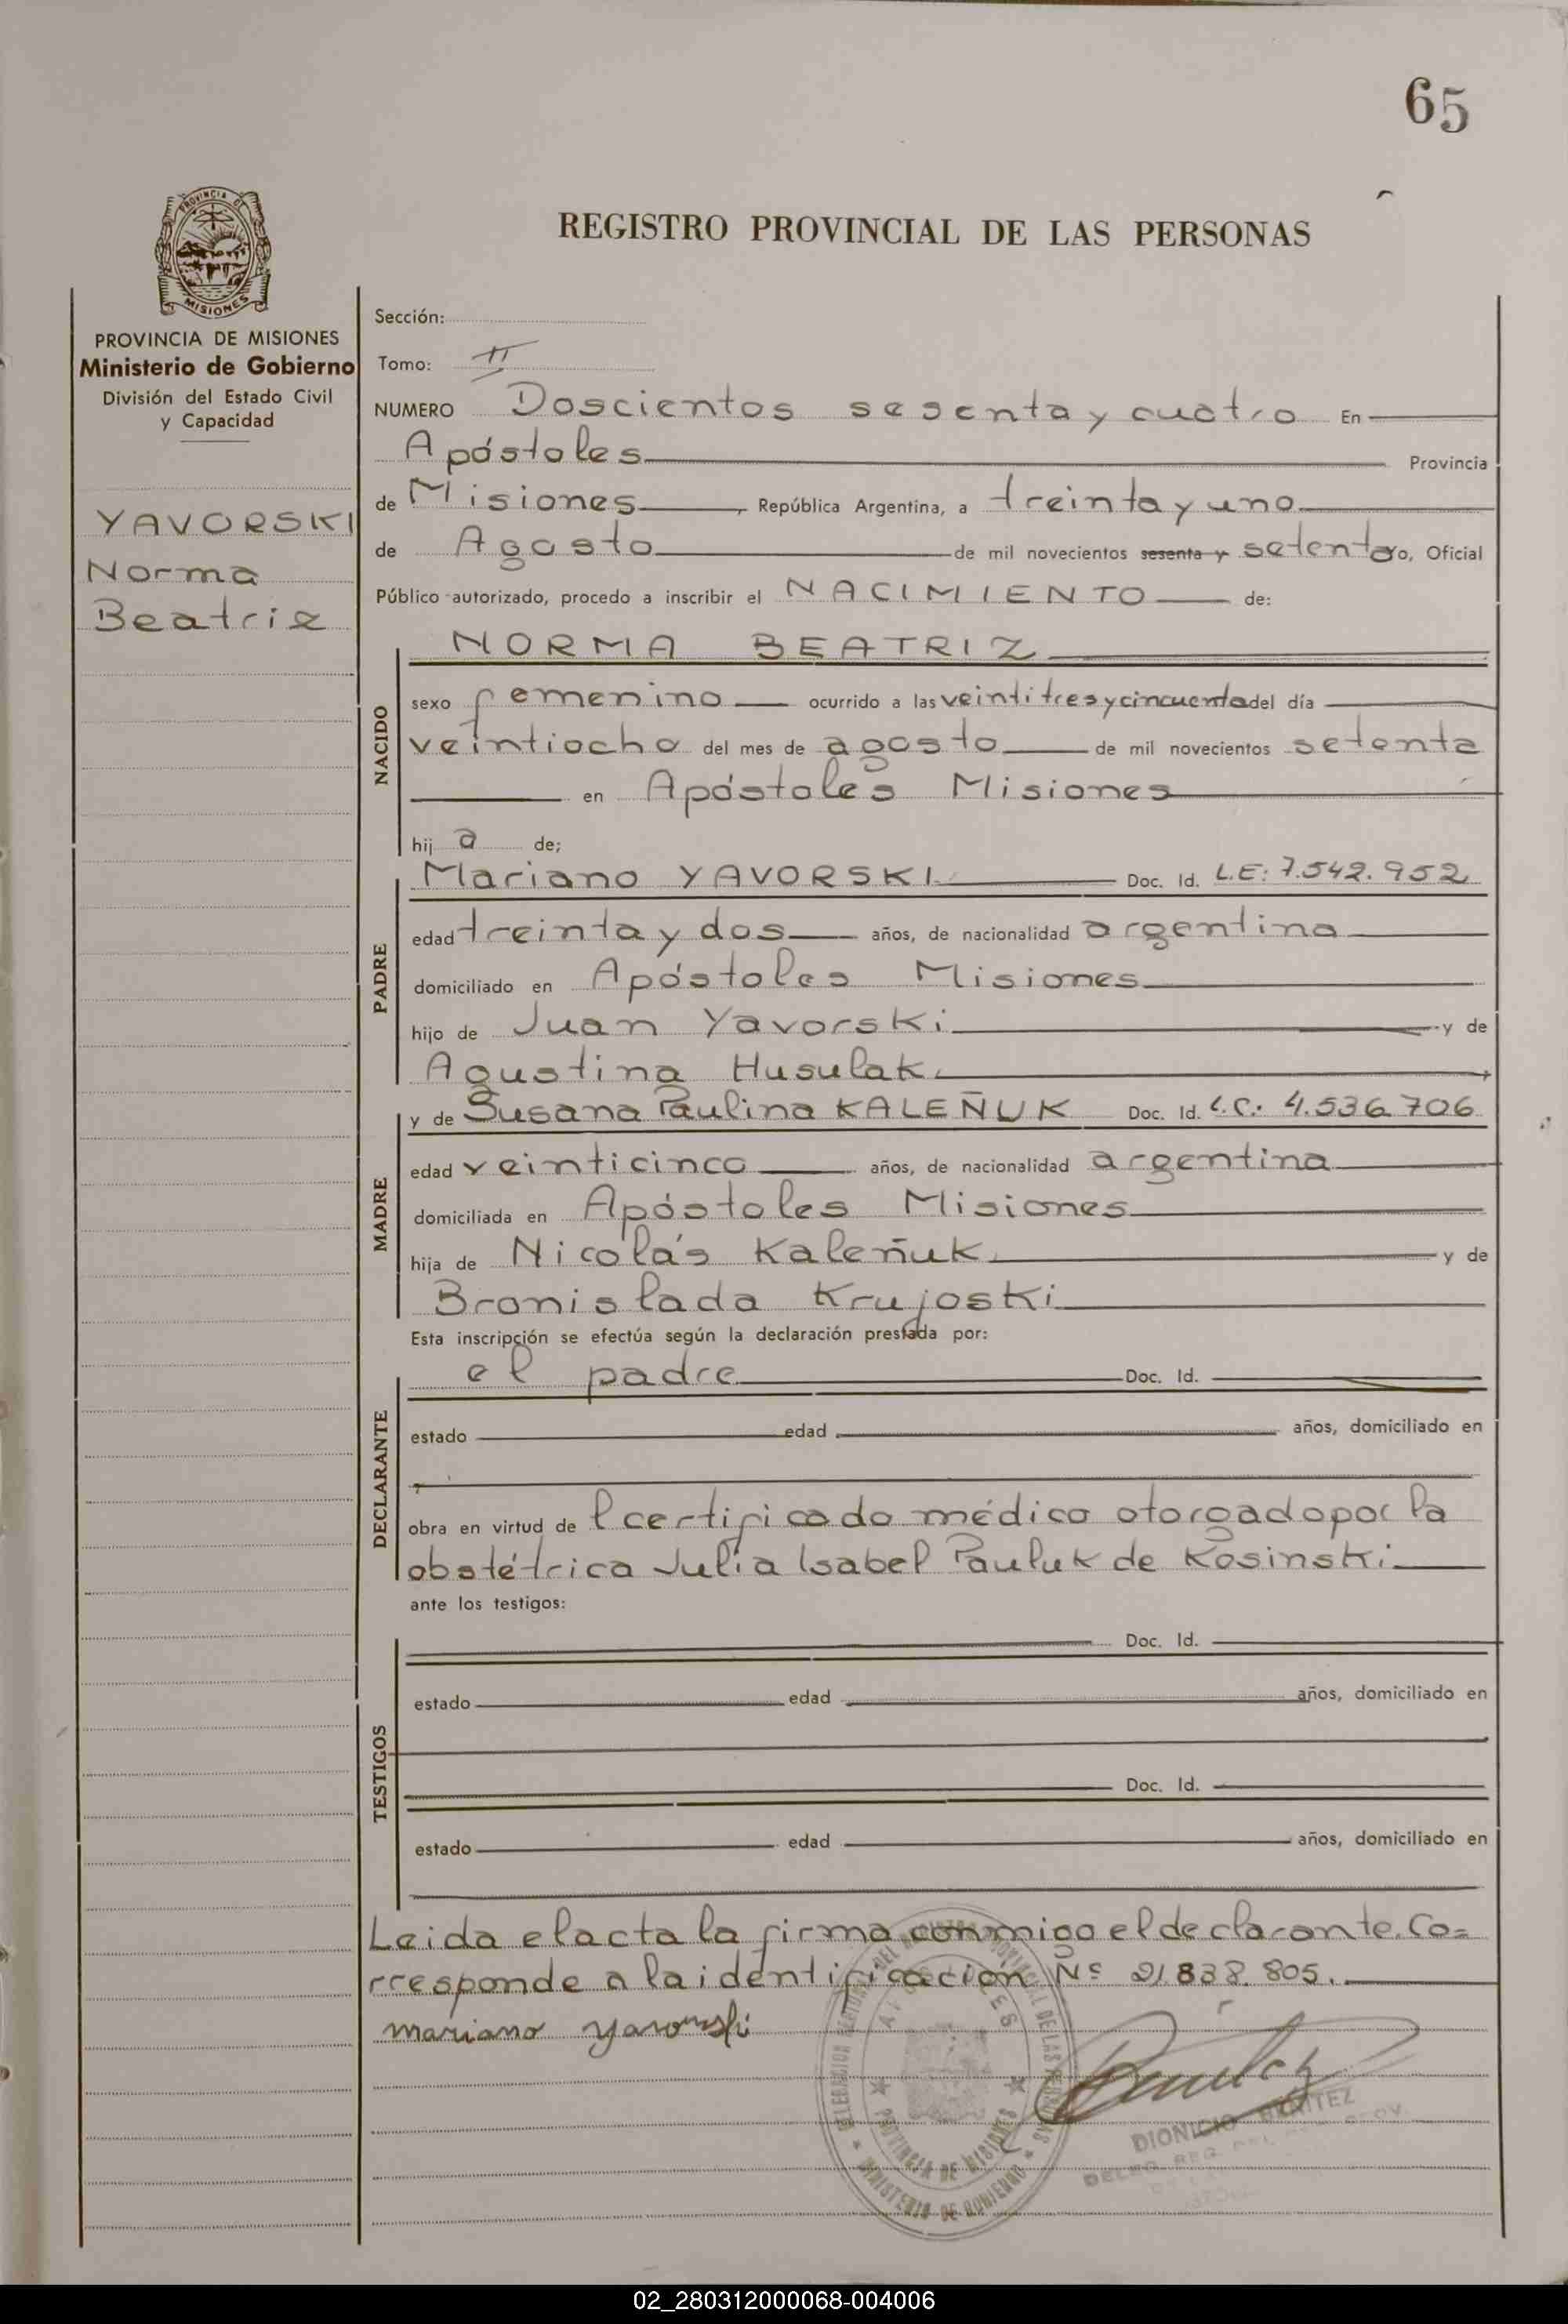 65
REGISTRO PROVINCIAL DE LAS PERSONAS
PROVINCIA DE MISIONES
PROVINCIA DE MISIONES
Ministerio de Gobierno
División del Estado Civil
y Capacidad
YAVORSKI
Norma
Beatriz
Sección:
Tomo: II
NUMERO Doscientos sesenta y cuatro En
Apóstoles Provincia
de Misiones, República Argentina, a treinta y uno
de Agosto de mil novecientos sesenta y setenta yo, Oficial
Público autorizado, procedo a inscribir el NACIMIENTO de:
NORMA BEATRIZ
NACIDO
sexo femenino ocurrido a las veintitres y cincuenta del día
veintiocho del mes de agosto de mil novecientos setenta
en Apóstoles Misiones
hij a de;
PADRE
Mariano YAVORSKI Doc. Id. L.E: 7.542.952
edad treinta y dos años, de nacionalidad argentina
domiciliado en Apóstoles Misiones
hijo de Juan Yavorski y de
Agustina Husulak.
MADRE
y de Susana Paulina KALEÑUK Doc. Id. L.C.: 4.536.706
edad veinticinco años, de nacionalidad argentina
domiciliada en Apóstoles Misiones
hija de Nicolás Kaleñuk y de
Bronislada Krujoski
Esta inscripción se efectúa según la declaración prestada por:
DECLARANTE
el padre Doc. Id.
estado edad años, domiciliado en
obra en virtud de l certificado médico otorgado por la
obstétrica Julia Isabel Pauluk de Kosinski
ante los testigos:
TESTIGOS
Doc. Id.
estado edad años, domiciliado en
Doc. Id.
estado edad años, domiciliado en
Leida el acta la firma conmigo el declarante. Co=
rresponde a la identificación Nº 21.838.805.
mariano yavorski
PROVINCIA DE MISIONES
MINISTERIO DE GOBIERNO
DIONICIO BENITEZ
02_280312000068-004006